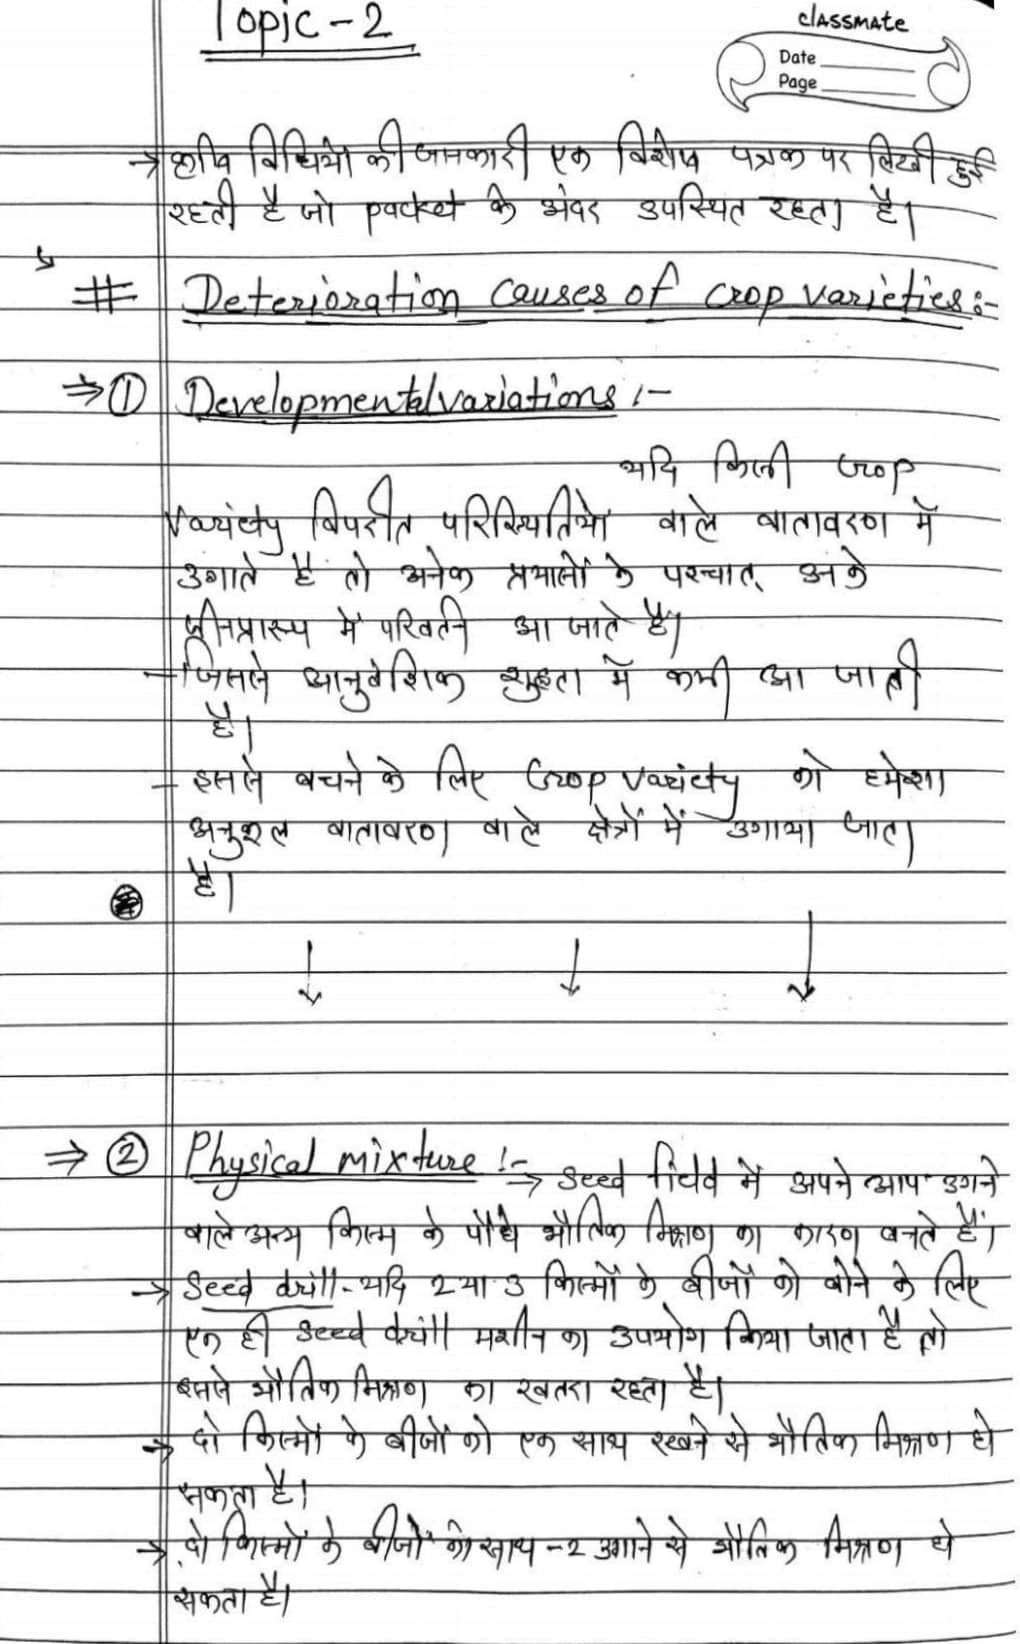 Topic-2
classmate
Date
Page
→ कृषि विधियो की जानकारी एक विशेष पत्रक पर लिखी हुई
रहती है जो packet के अंदर उपस्थित रहता है।
# Deterioration causes of crop varieties:-
⇒ ① Developmental variations :-
यदि किसी Crop
Variety विपरीत परिस्थितियो वाले वातावरण में
उगाते हैं तो अनेक फसलों के पश्चात् उनके
जीनप्रारूप में परिवर्तन आ जाते हैं।
- जिससे आनुवंशिक शुद्धता में कमी आ जाती
है।
- इससे बचने के लिए Crop variety को हमेशा
अनुकूल वातावरण वाले क्षेत्रों में उगाया जाता
है।
↓ ↓ ↓
⇒ ② Physical mixture :- → Seed फिल्ड में अपने आप उगने
वाले अन्य किस्म के पौधे भौतिक मिश्रण का कारण बनते हैं।
→ Seed drill - यदि 2 या 3 किस्मों के बीजों को बोने के लिए
एक ही Seed drill मशीन का उपयोग किया जाता है तो
इससे भौतिक मिश्रण का खतरा रहता है।
→ दो किस्मों के बीजों को एक साथ रखने से भौतिक मिश्रण हो
सकता है।
→ दो किस्मों के बीजों को साथ-2 उगाने से भौतिक मिश्रण हो
सकता है।